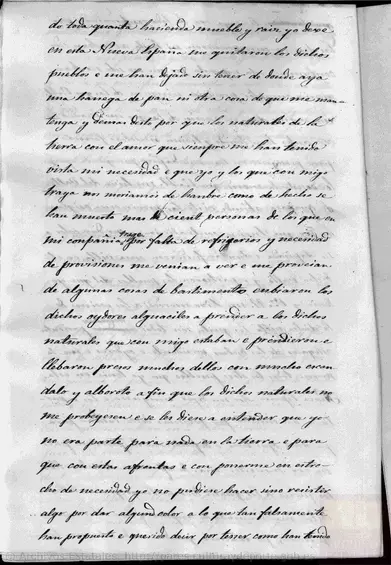 de toda quanta hacienda mueble y raiz yo dexe
en esta Nueva España me quitaron los dichos
pueblos e me han dejado sin tener de donde aya
una hanega de pan ni otra cosa de que me man-
tenga y demas desto por que los naturales de la
tierra con el amor que siempre me han tenido
vista mi necesidad e que yo y los que con migo
traya nos moriamos de hambre como de hecho se
han muerto mas de cient personas de los que en
mi compañia traje por falta de refrigerios y necesidad
de provisiones me venian a ver e me proveian
de algunas cosas de bastimento enbiaron los
dichos oydores alguaciles a prender a los dichos
naturales que con migo estaban e prendieron e
llebaron presos muchos dellos con mucho escan
dalo y alboroto a fin que los dichos naturales no
me probeyesen e se les diese a entender que yo
no era parte para nada en la tierra e para
que con estas afrentas e con ponerme en estre-
cho de necesidad yo no pudiese hacer sino resistir
algo por dar algund color a lo que tan falsamente
han propuesto e querido decir por tener como han tenido